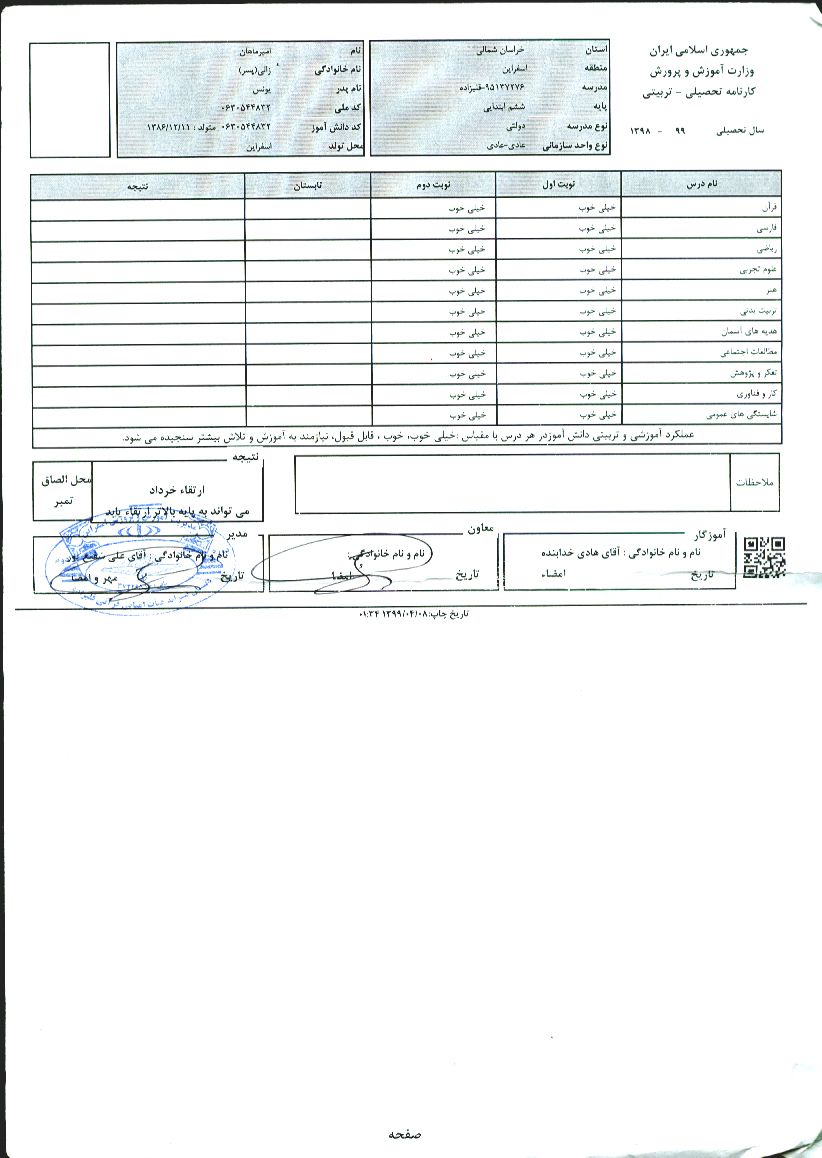 جمهوری اسلامی ایران
وزارت آموزش و پرورش
کارنامه تحصیلی - تربیتی
سال تحصیلی ۹۹ - ۱۳۹۸
استان خراسان شمالی
منطقه اسفراین
مدرسه ۹۵۱۳۷۲۷۶-قلیزاده
پایه ششم ابتدایی
نوع مدرسه دولتی
نوع واحد سازمانی عادی-عادی
نام امیرماهان
نام خانوادگی زالی(پسر)
نام پدر یونس
کد ملی ۰۶۳۰۵۴۴۸۳۲
کد دانش آموز ۰۶۳۰۵۴۴۸۳۲ متولد : ۱۳۸۶/۱۲/۱۱
محل تولد اسفراین
نام درس نوبت اول نوبت دوم تابستان نتیجه
قرآن خیلی خوب خیلی خوب
فارسی خیلی خوب خیلی خوب
ریاضی خیلی خوب خیلی خوب
علوم تجربی خیلی خوب خیلی خوب
هنر خیلی خوب خیلی خوب
تربیت بدنی خیلی خوب خیلی خوب
هدیه های آسمان خیلی خوب خیلی خوب
مطالعات اجتماعی خیلی خوب خیلی خوب
تفکر و پژوهش خیلی خوب خیلی خوب
کار و فناوری خیلی خوب خیلی خوب
شایستگی های عمومی خیلی خوب خیلی خوب
عملکرد آموزشی و تربیتی دانش آموزدر هر درس با مقیاس :خیلی خوب، خوب ، قابل قبول، نیازمند به آموزش و تلاش بیشتر سنجیده می شود.
ملاحظات
نتیجه
ارتقاء خرداد
می تواند به پایه بالاتر ارتقاء یابد
محل الصاق
تمبر
آموزگار
نام و نام خانوادگی : آقای هادی خدابنده
تاریخ امضاء
معاون
نام و نام خانوادگی:
تاریخ امضا
مدیر
نام و نام خانوادگی : آقای علی
تاریخ مهر و امضا
تاریخ چاپ:۱۳۹۹/۰۴/۰۸ ۰۱:۳۴
صفحه